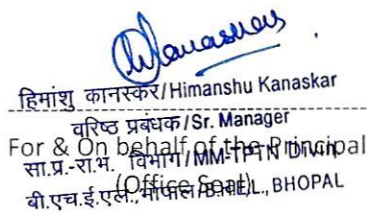 हिमांशु कानस्कर/Himanshu Kanaskar
वरिष्ठ प्रबंधक/Sr. Manager
For & On behalf of the Principal
सा.प्र.-रा.भ. विभाग/MM-TPTN Divn
(Office Seal)
बी.एच.ई.एल., भोपाल/B.H.E.L., BHOPAL